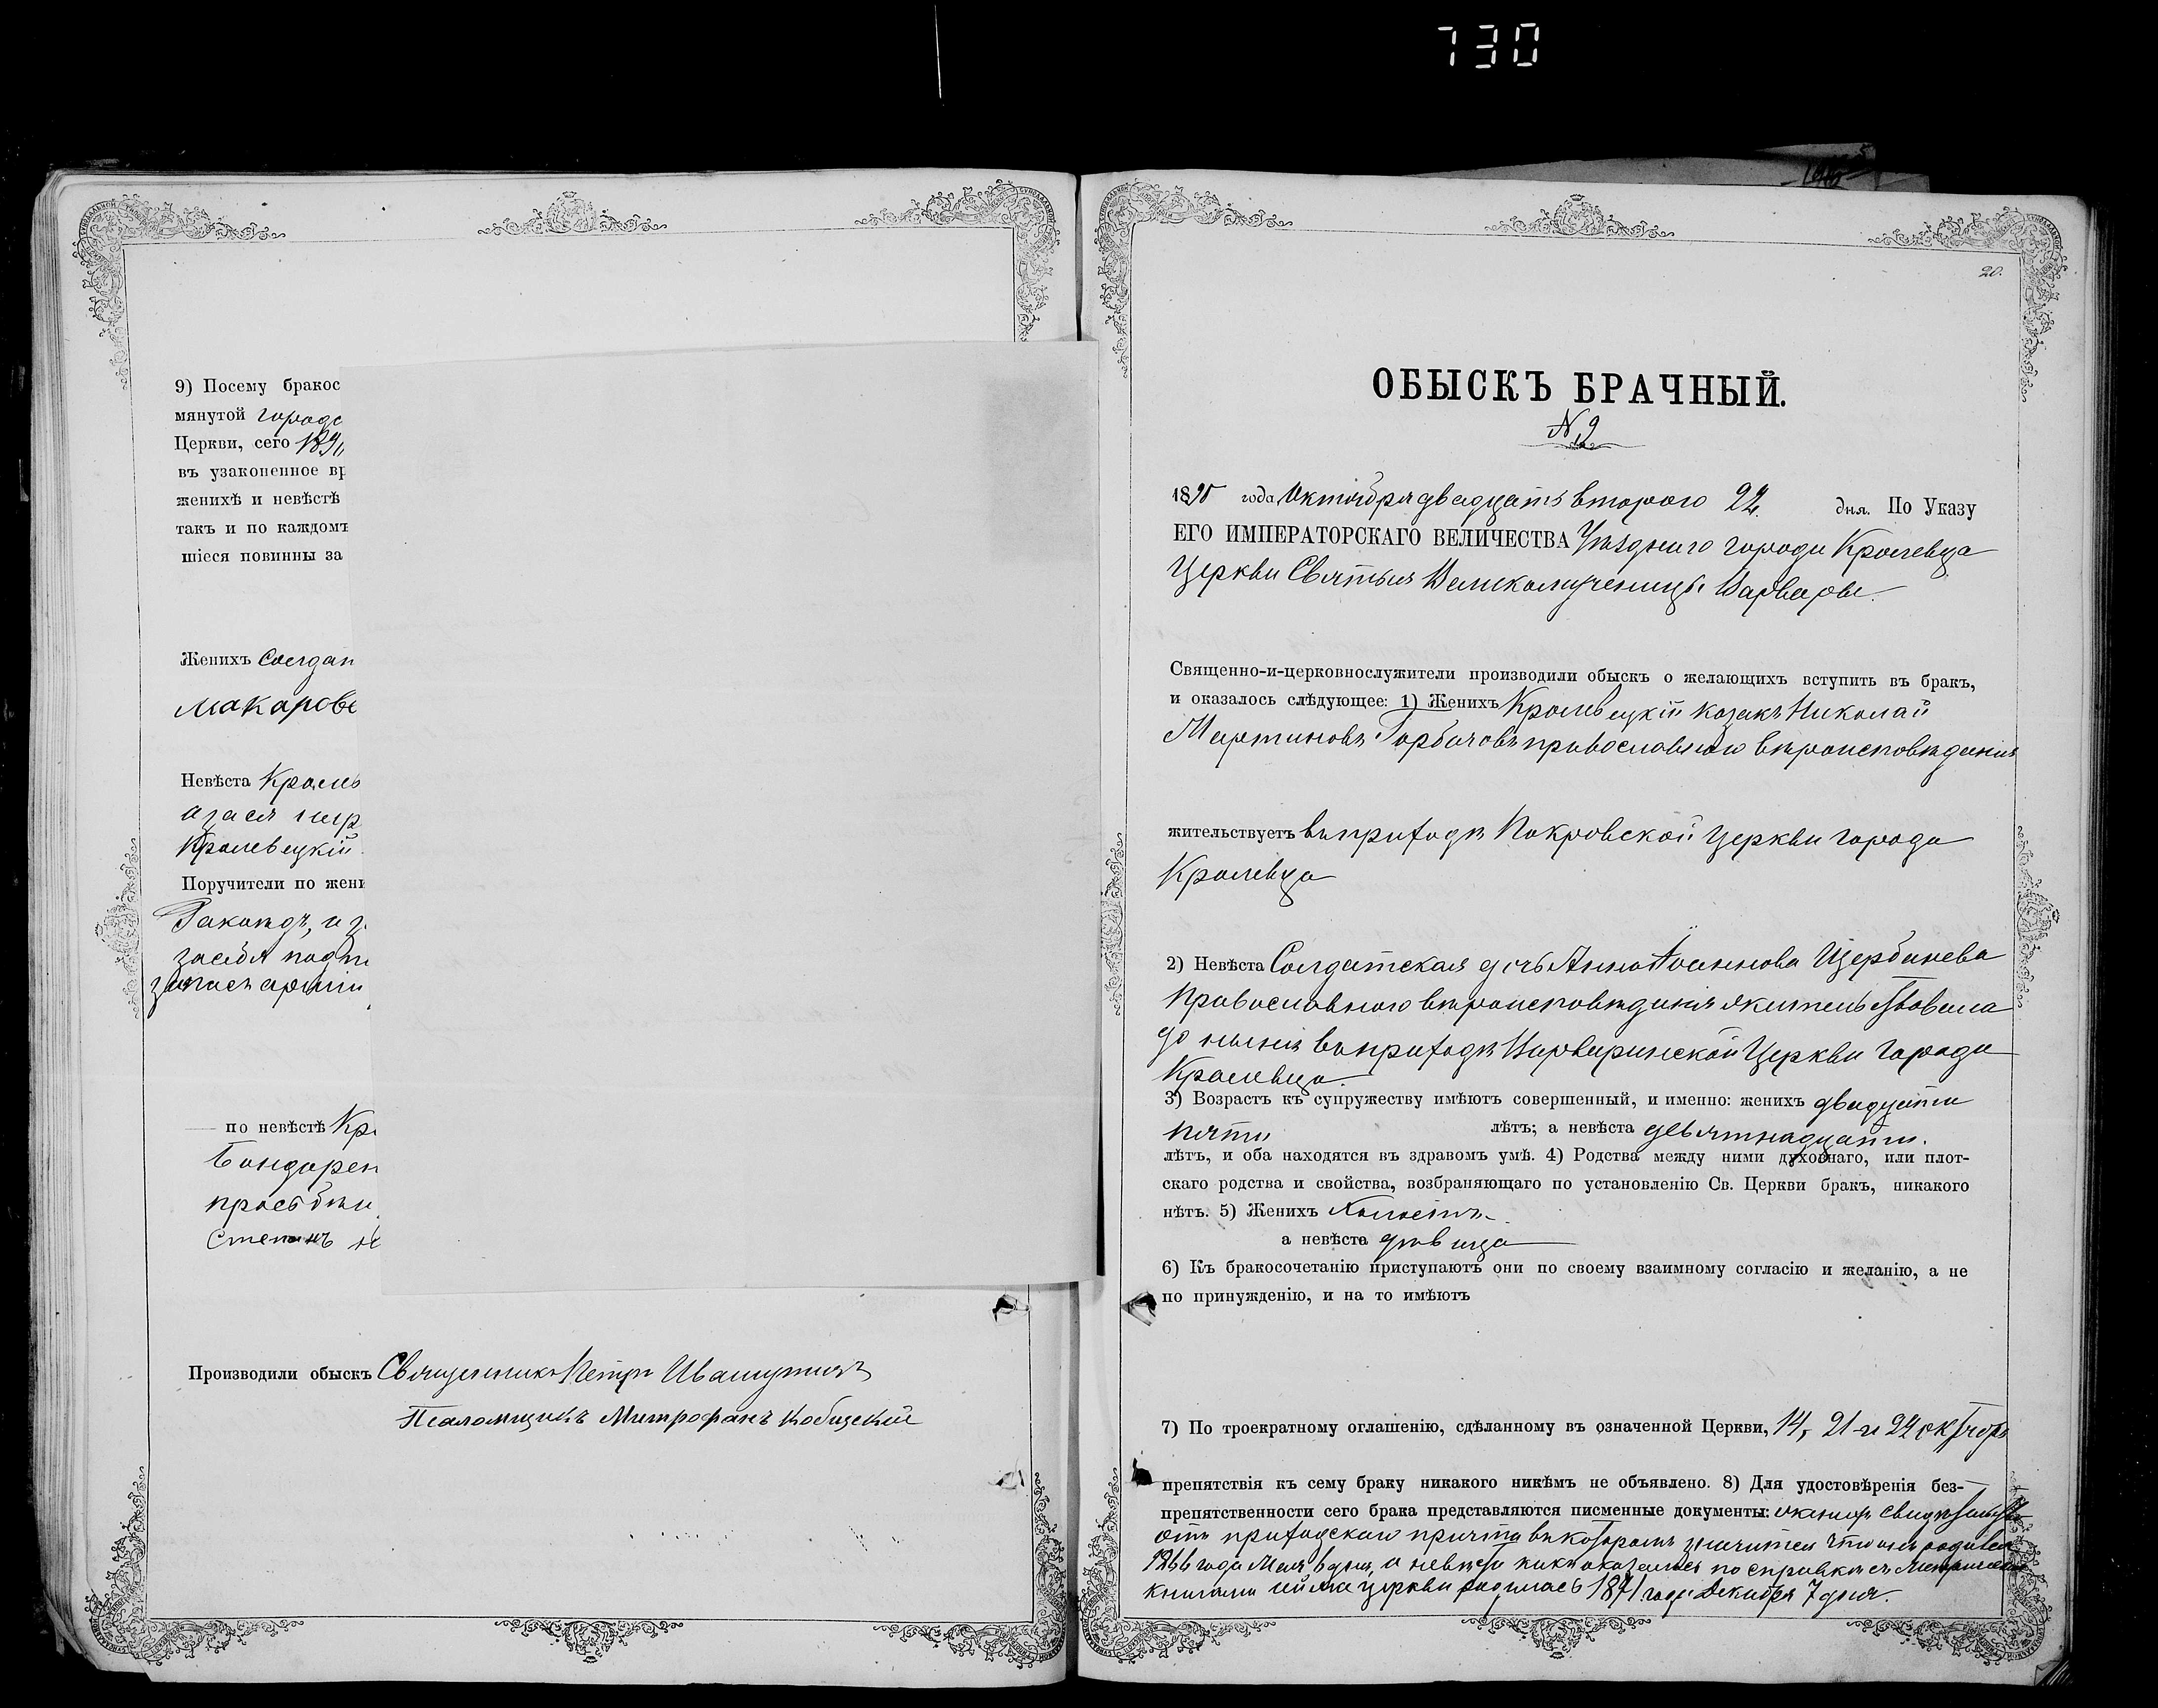 730
9) Посему бракос
мянутой городс
Церкви, сего 189
въ узаконенное вр
женихѣ и невѣстѣ
такъ и по каждомъ
шіеся повинны за
Женихъ Солдат
Макарове
Невѣста Кролев
а за ея негр
Кролевецкій
Поручители по жени
за себя подпи
запаса арміи
по невѣстѣ Кр
Бондарен
просьбѣ и
Степанъ
Производили обыскъ Священникъ Петръ Ивашутичъ
Псаломщикъ Митрофанъ Кобицскій
20.
ОБЫСКЪ БРАЧНЫЙ.
№ 9
1890 года Октября двадцать второго 22 дня. По Указу
ЕГО ИМПЕРАТОРСКАГО ВЕЛИЧЕСТВА Уѣзднаго города Кролевца
Церкви Святыя Великомученицы Варвары.
Священно-и-церковнослужители производили обыскъ о желающихъ вступить въ бракъ,
и оказалось слѣдующее: 1) Женихъ Кролевецкій козакъ Николай
Мартиновъ Горбачовъ православнаго вѣроисповѣданія
жительствуетъ въ приходѣ Покровской церкви города
Кролевца
2) Невѣста Солдатская дочь Анна Іоаннова Щербинева
православного вѣроисповѣданія жительствовала
до нынѣ въ приходѣ Варваринской Церкви города
Кролевца.
3) Возрастъ къ супружеству имѣютъ совершенный, и именно: женихъ двадцати
пяти лѣтъ; а невѣста девятнадцати.
лѣтъ, и оба находятся въ здравомъ умѣ. 4) Родства между ними духовнаго, или плот-
скаго родства и свойства, возбраняющаго по установленію Св. Церкви бракъ, никакого
нѣтъ. 5) Женихъ Холостъ
а невѣста дѣвица
6) Къ бракосочетанію приступаютъ они по своему взаимному согласію и желанію, а не
по принужденію, и на то имѣютъ
7) По троекратному оглашенію, сдѣланному въ означенной Церкви, 14, 21 и 22 октября
препятствія къ сему браку никакого никѣмъ не объявлено. 8) Для удостовѣренія без-
препятственности сего брака представляются писменные документы: женихъ свидѣтельство
отъ приходскаго причта въ которомъ значится что онъ родился
1866 года Мая 6 дня, а невѣста какъ оказалось по справкѣ съ Метрическими
книгами сей же церкви родилась 1871 года Декабря 7 дня.